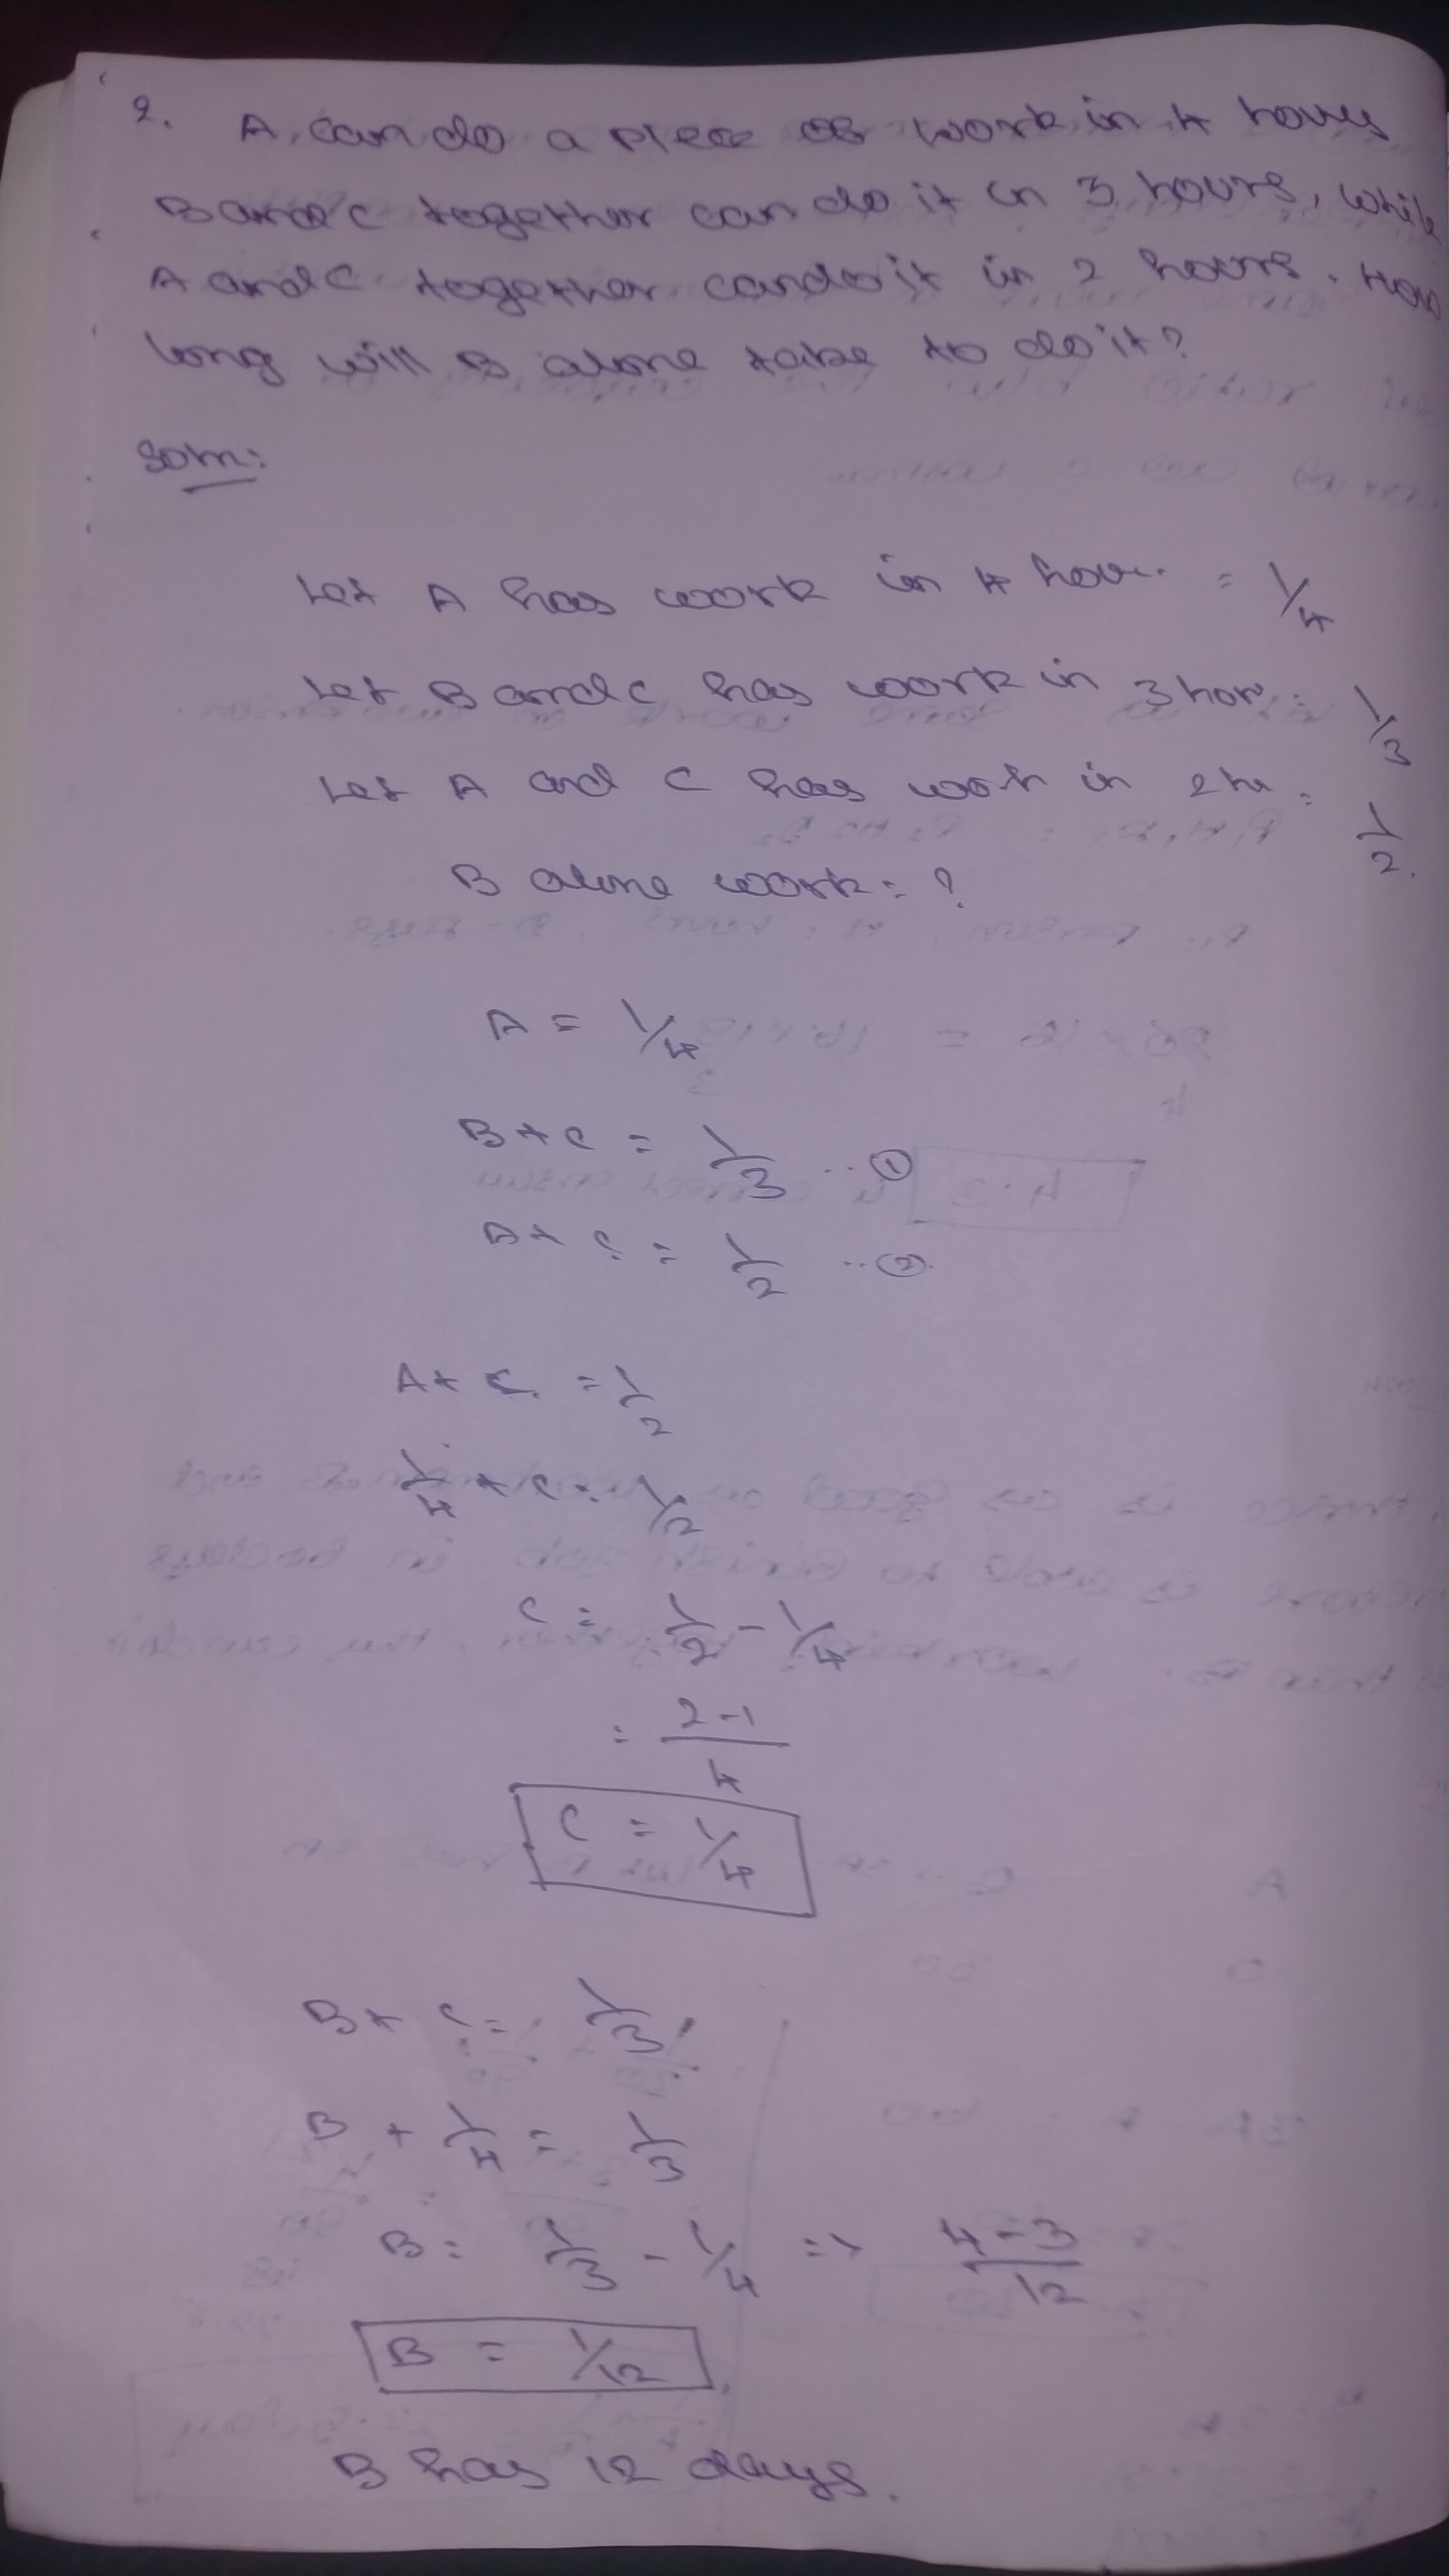 2. A can do a piece of work in 4 hours
B and C together can do it in 3 hours, while
A and C together can do it in 2 hours. How
long will B alone take to do it?
Soln:
Let A has work in 4 hour = 1/4
Let B and C has work in 3 hor = 1/3
Let A and C has work in 2 hr = 1/2.
B alone work = ?
A = 1/4
B + C = 1/3 ..①
A + C = 1/2 ..②
A + C = 1/2
1/4 + C = 1/2
C = 1/2 - 1/4
= 2-1/4
C = 1/4
B + C = 1/3
B + 1/4 = 1/3
B = 1/3 - 1/4 => 4-3/12
B = 1/12
B has 12 days.